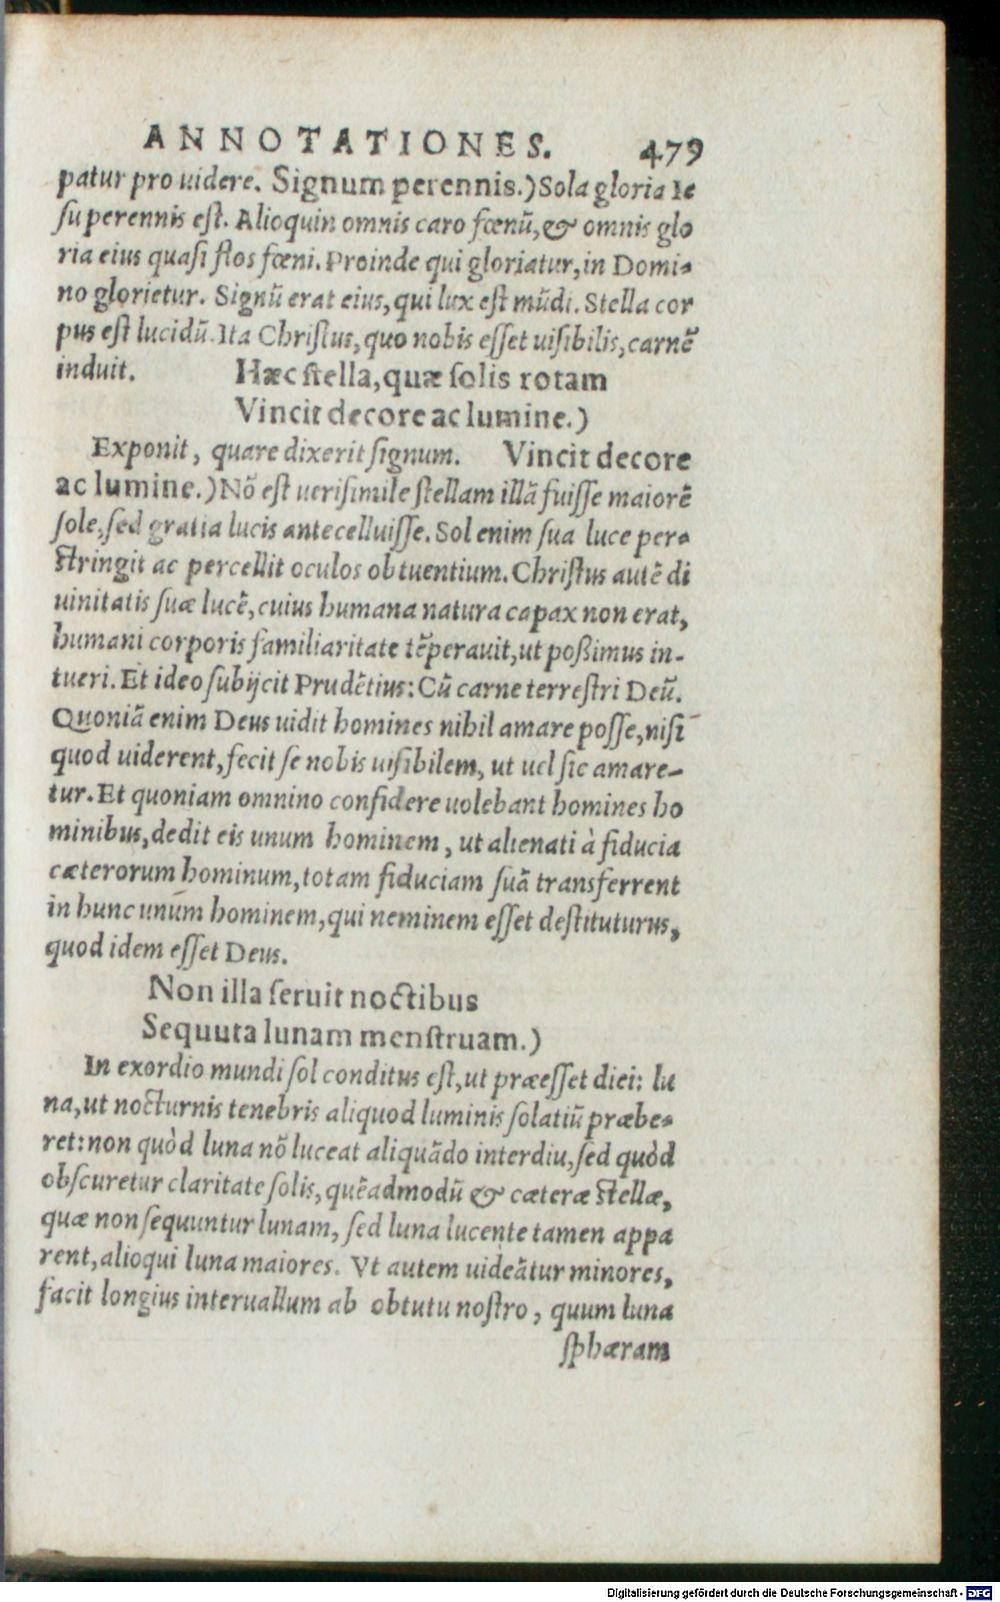 ANNOTATIONES. 479
patur pro uidere. Signum perennis.) Sola gloria Ie
su perennis est. Alioquin omnis caro fœnũ, & omnis glo
ria eius quasi flos fœni. Proinde qui gloriatur, in Domi-
no glorietur. Signũ erat eius, qui lux est mũdi. Stella cor
pus est lucidũ. Ita Christus, quo nobis esset uisibilis, carnẽ
induit. Hæc stella, quæ solis rotam
Vincit decore ac lumine.)
Exponit, quare dixerit signum. Vincit decore
ac lumine.) Nõ est uerisimile stellam illã fuisse maiorẽ
sole, sed gratia lucis antecelluisse. Sol enim sua luce per-
stringit ac percellit oculos obtuentium. Christus autẽ di
uinitatis suæ lucẽ, cuius humana natura capax non erat,
humani corporis familiaritate tẽperauit, ut poßimus in-
tueri. Et ideo subijcit Prudẽtius: Cũ carne terrestri Deũ.
Quoniã enim Deus uidit homines nihil amare posse, nisi
quod uiderent, fecit se nobis uisibilem, ut uel sic amare-
tur. Et quoniam omnino confidere uolebant homines ho
minibus, dedit eis unum hominem, ut alienati à fiducia
cæterorum hominum, totam fiduciam suã transferrent
in hunc unum hominem, qui neminem esset destituturus,
quod idem esset Deus.
Non illa seruit noctibus
Sequuta lunam menstruam.)
In exordio mundi sol conditus est, ut præesset diei: lu
na, ut nocturnis tenebris aliquod luminis solatiũ præbe-
ret: non quòd luna nõ luceat aliquãdo interdiu, sed quòd
obscuretur claritate solis, quẽadmodũ & cæteræ stellæ,
quæ non sequuntur lunam, sed luna lucente tamen appa
rent, alioqui luna maiores. Vt autem uideãtur minores,
facit longius interuallum ab obtutu nostro, quum luna
sphæram
Digitalisierung gefördert durch die Deutsche Forschungsgemeinschaft - DFG